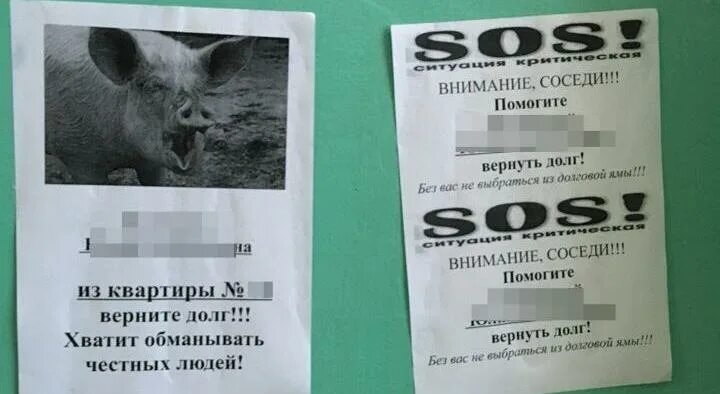 на
из квартиры №
верните долг!!!
Хватит обманывать
честных людей!
SOS!
ситуация критическая
ВНИМАНИЕ, СОСЕДИ!!!
Помогите
вернуть долг!
Без вас не выбраться из долговой ямы!!!
SOS!
ситуация критическая
ВНИМАНИЕ, СОСЕДИ!!!
Помогите
вернуть долг!
Без вас не выбраться из долговой ямы!!!